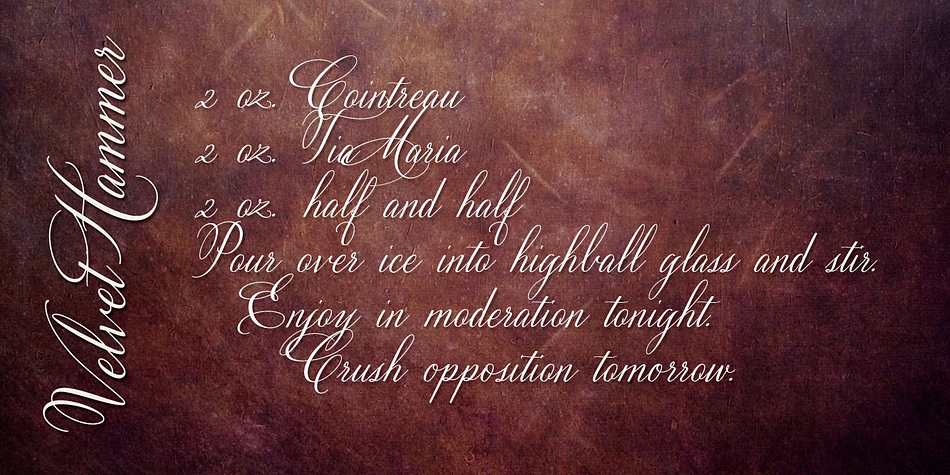 Velvet Hammer
2 oz. Cointreau
2 oz. Tia Maria
2 oz. half and half
Pour over ice into highball glass and stir.
Enjoy in moderation tonight.
Crush opposition tomorrow.